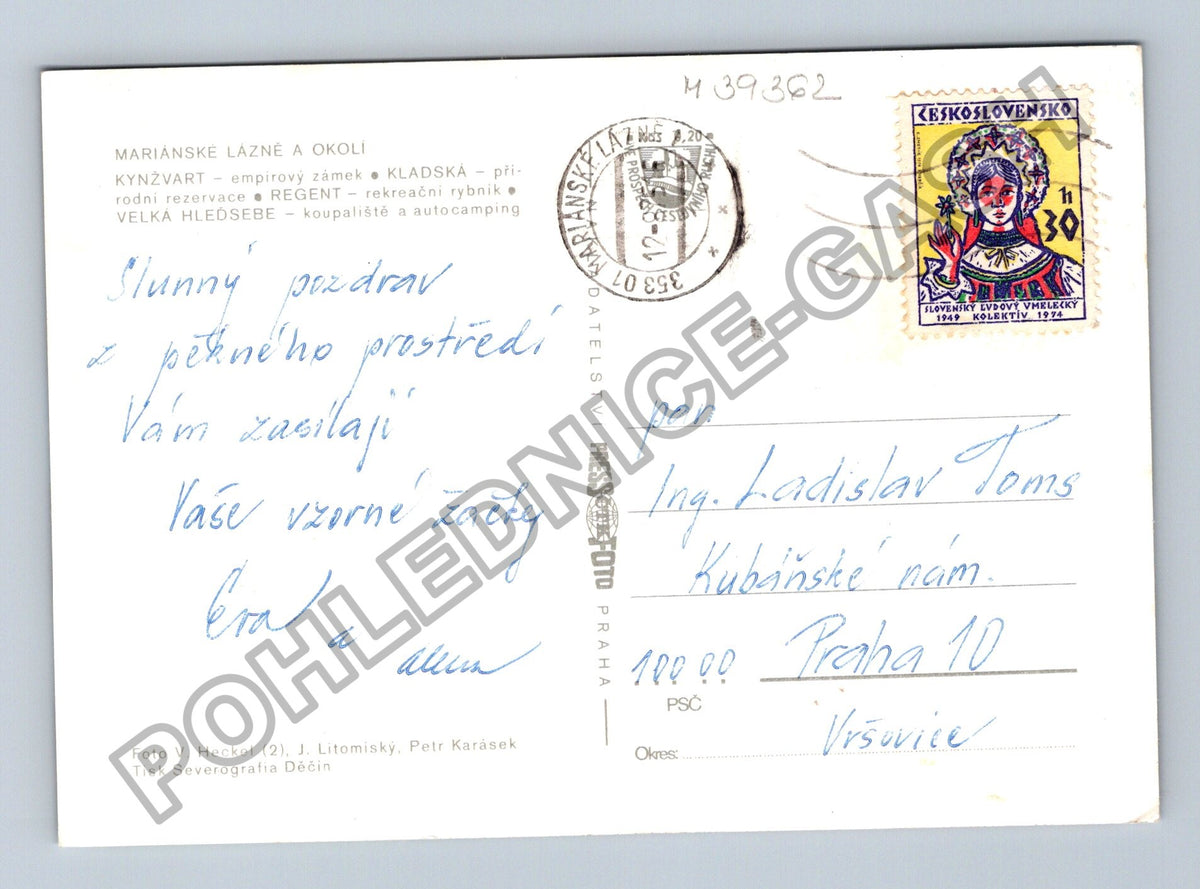 M 39362
MARIÁNSKÉ LÁZNĚ A OKOLÍ
KYNŽVART – empirový zámek ● KLADSKÁ – pří-
rodní rezervace ● REGENT – rekreační rybník ●
VELKÁ HLEĎSEBE – koupaliště a autocamping
Slunný pozdrav
z pěkného prostředí
Vám zasílají
Vaše vzorné žačky
Eva
a
Foto V. Heckel (2), J. Litomiský, Petr Karásek
Tisk Severografia Děčín
353 01 MARIÁNSKÉ LÁZNĚ
Kčs 0,20
ČESKOSLOVENSKO
30 h
SLOVENSKÝ ĽUDOVÝ UMELECKÝ
1949 KOLEKTÍV 1974
VYDAVATELSTVÍ
PRESSFOTO
PRAHA
pan
Ing. Ladislav Toms
Kubáňské nám.
100 00 Praha 10
PSČ
Vršovice
Okres:
POHLEDNICE-GASH